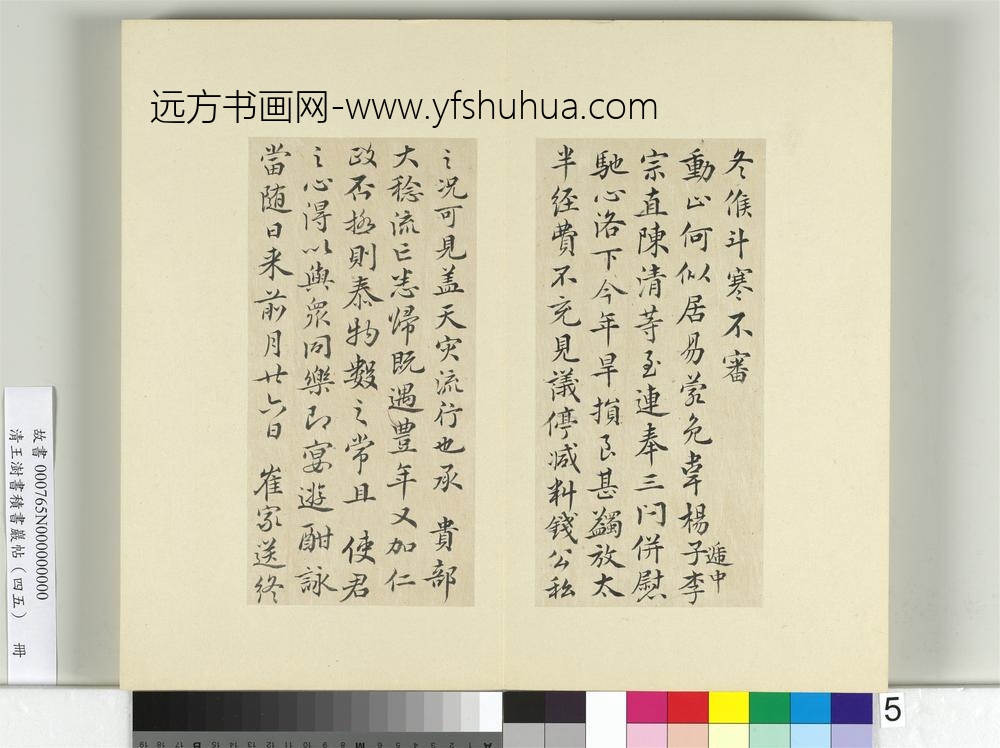 远方书画网-www.yfshuhua.com
冬候斗寒不審
動止何似居易蒙免韋楊子遞中李
宗直陳清等至連奉三问併慰
馳心洛下今年旱損至甚蠲放太
半经費不充見議停减料錢公私
之况可見盖天灾流行也承 貴部
大稔流亡悉歸既遇豊年又加仁
政否極則泰物數之常且 使君
之心得以與眾同樂即宴遊酣詠
當随日来前月廿六日 崔家送终
故書 000765N000000000
清王澍書積書巖帖(四五) 冊
5